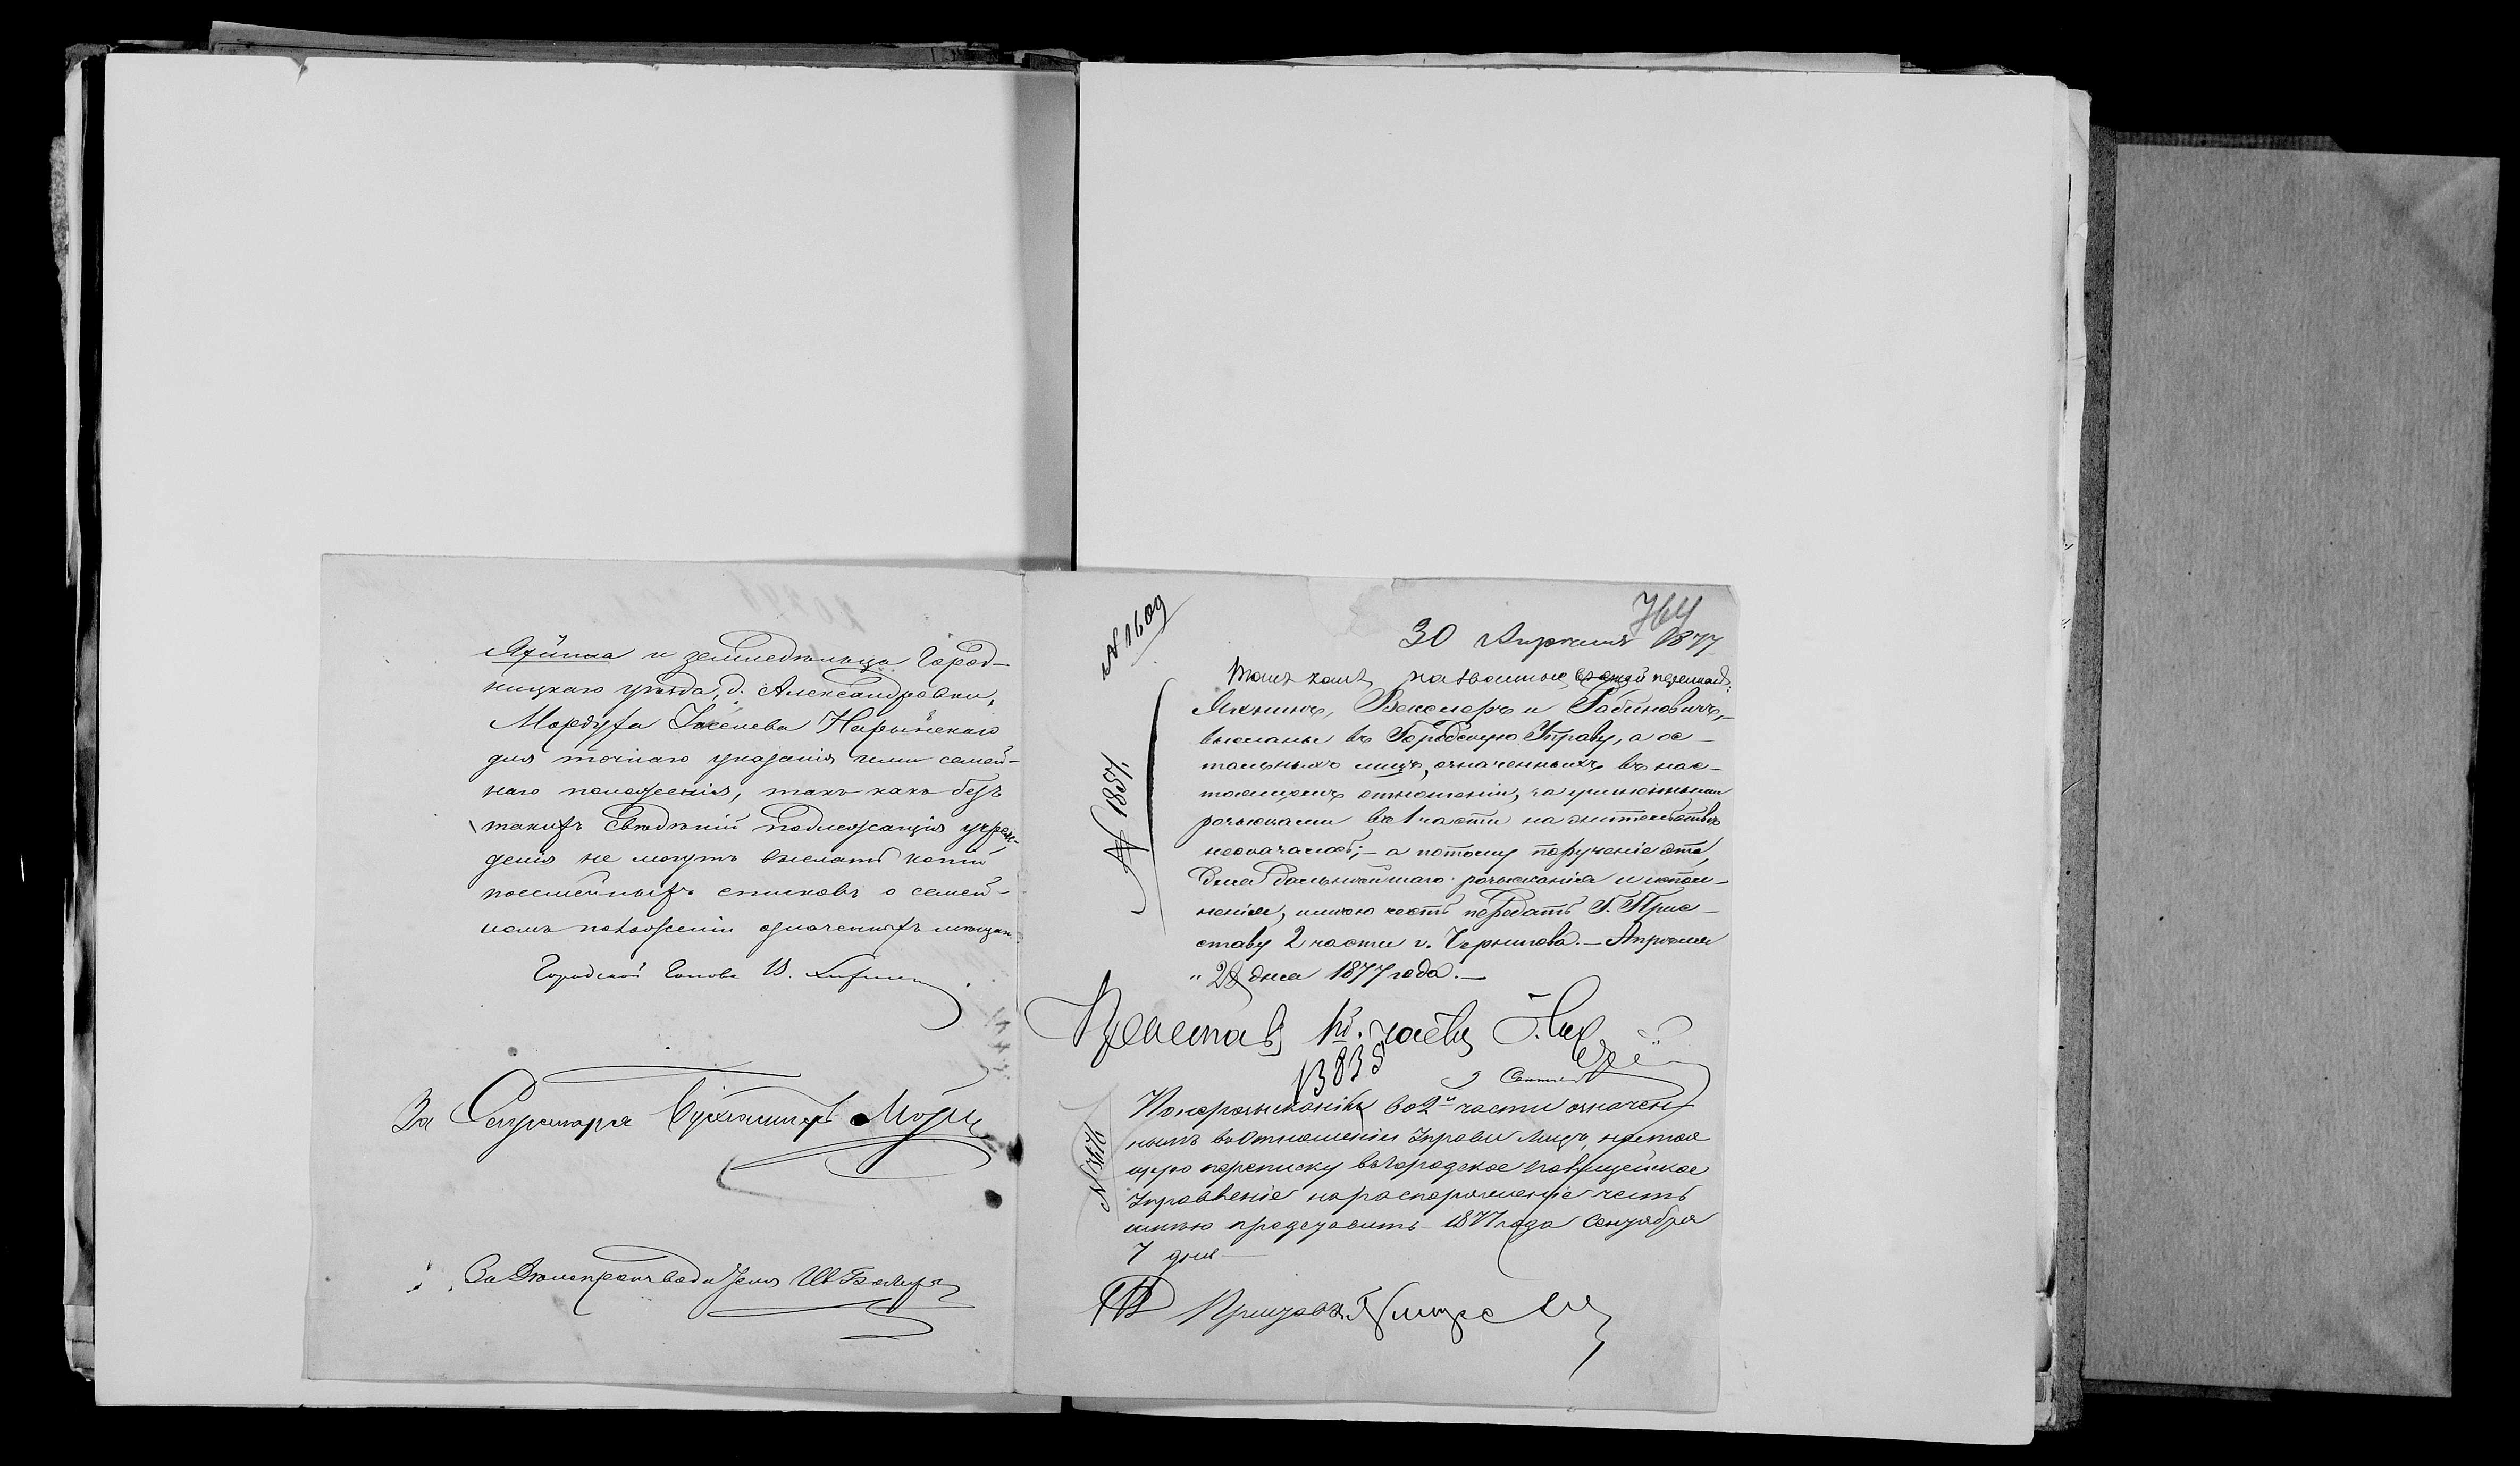 и земледельца Город-
ницкаго уѣзда, д. Александровки,
Мордуха
для точнаго указанія ими семей-
наго положенія, такъ какъ безъ
такихъ свѣдѣній подлежащія учреж-
денія не могутъ выслать копій
посемейныхъ списковъ о семей-
номъ положеніи означенныхъ мѣщанъ.
Городской Голова
За Секретаря Бухгалтеръ
За Дѣлопроизводителя
764
N 1609
30 Апрѣля 1877
N 1857.
Такъ какъ названные въ этой перепискѣ:
Векслеръ и Рабиновичъ,-
высланы въ Городскую Управу, а ос-
тальныхъ лицъ, означенныхъ въ нас-
тоящемъ отношеніи, за
розысками въ 1 части на жительствѣ
неоказалось; - а потому порученіе это,
для дальнѣйшаго розысканія и испол-
ненія, имѣю честь передать Г. При-
ставу 2 части г. Чернигова. - Апрѣля
" 28 дня 1877 года. -
Приставъ 1й. части
13835
N 3676
По нерозысканію во 2й части означен-
нымъ въ отношеніи Управы лицъ, настоя
щую переписку въ городское полицейское
Управленіе на распоряженіе честь
имѣю представить 1877 года Сентября
7 дня
Приставъ